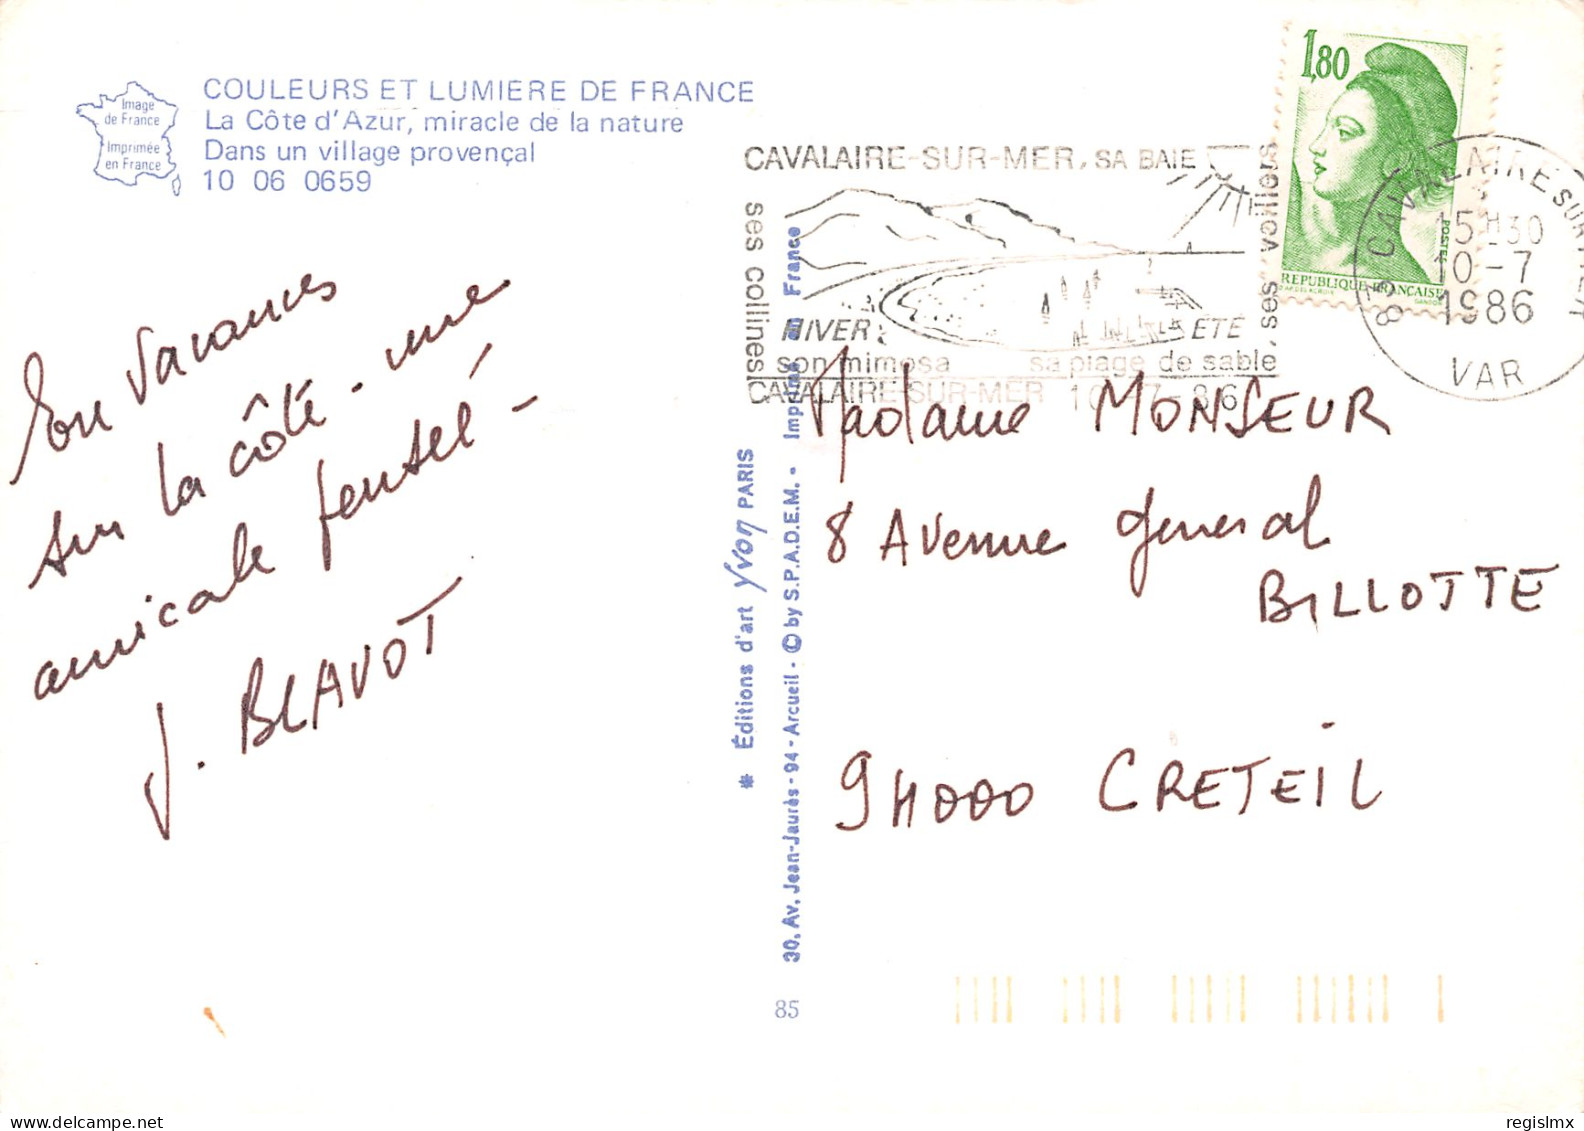 COULEURS ET LUMIERE DE FRANCE
La Côte d'Azur, miracle de la nature
Dans un village provençal
10 06 0659
Image
de France
Imprimée
en France
En vacances
sur la côte - une
amicale pensée -
J. BLAVOT
* Éditions d'art Yvon PARIS
30, Av. Jean-Jaurès - 94 - Arcueil - © by S.P.A.D.E.M. - Imprimé en France
85
CAVALAIRE-SUR-MER, SA BAIE
ses collines
ses voiliers
HIVER ETE
son mimosa sa plage de sable,
CAVALAIRE-SUR-MER 10-7-86
1,80
POSTES
REPUBLIQUE FRANÇAISE
83 CAVALAIRE SUR MER
15H30
10-7
1986
VAR
Madame MONSEUR
8 Avenue Général
BILLOTTE
94000 CRETEIL
regislmx